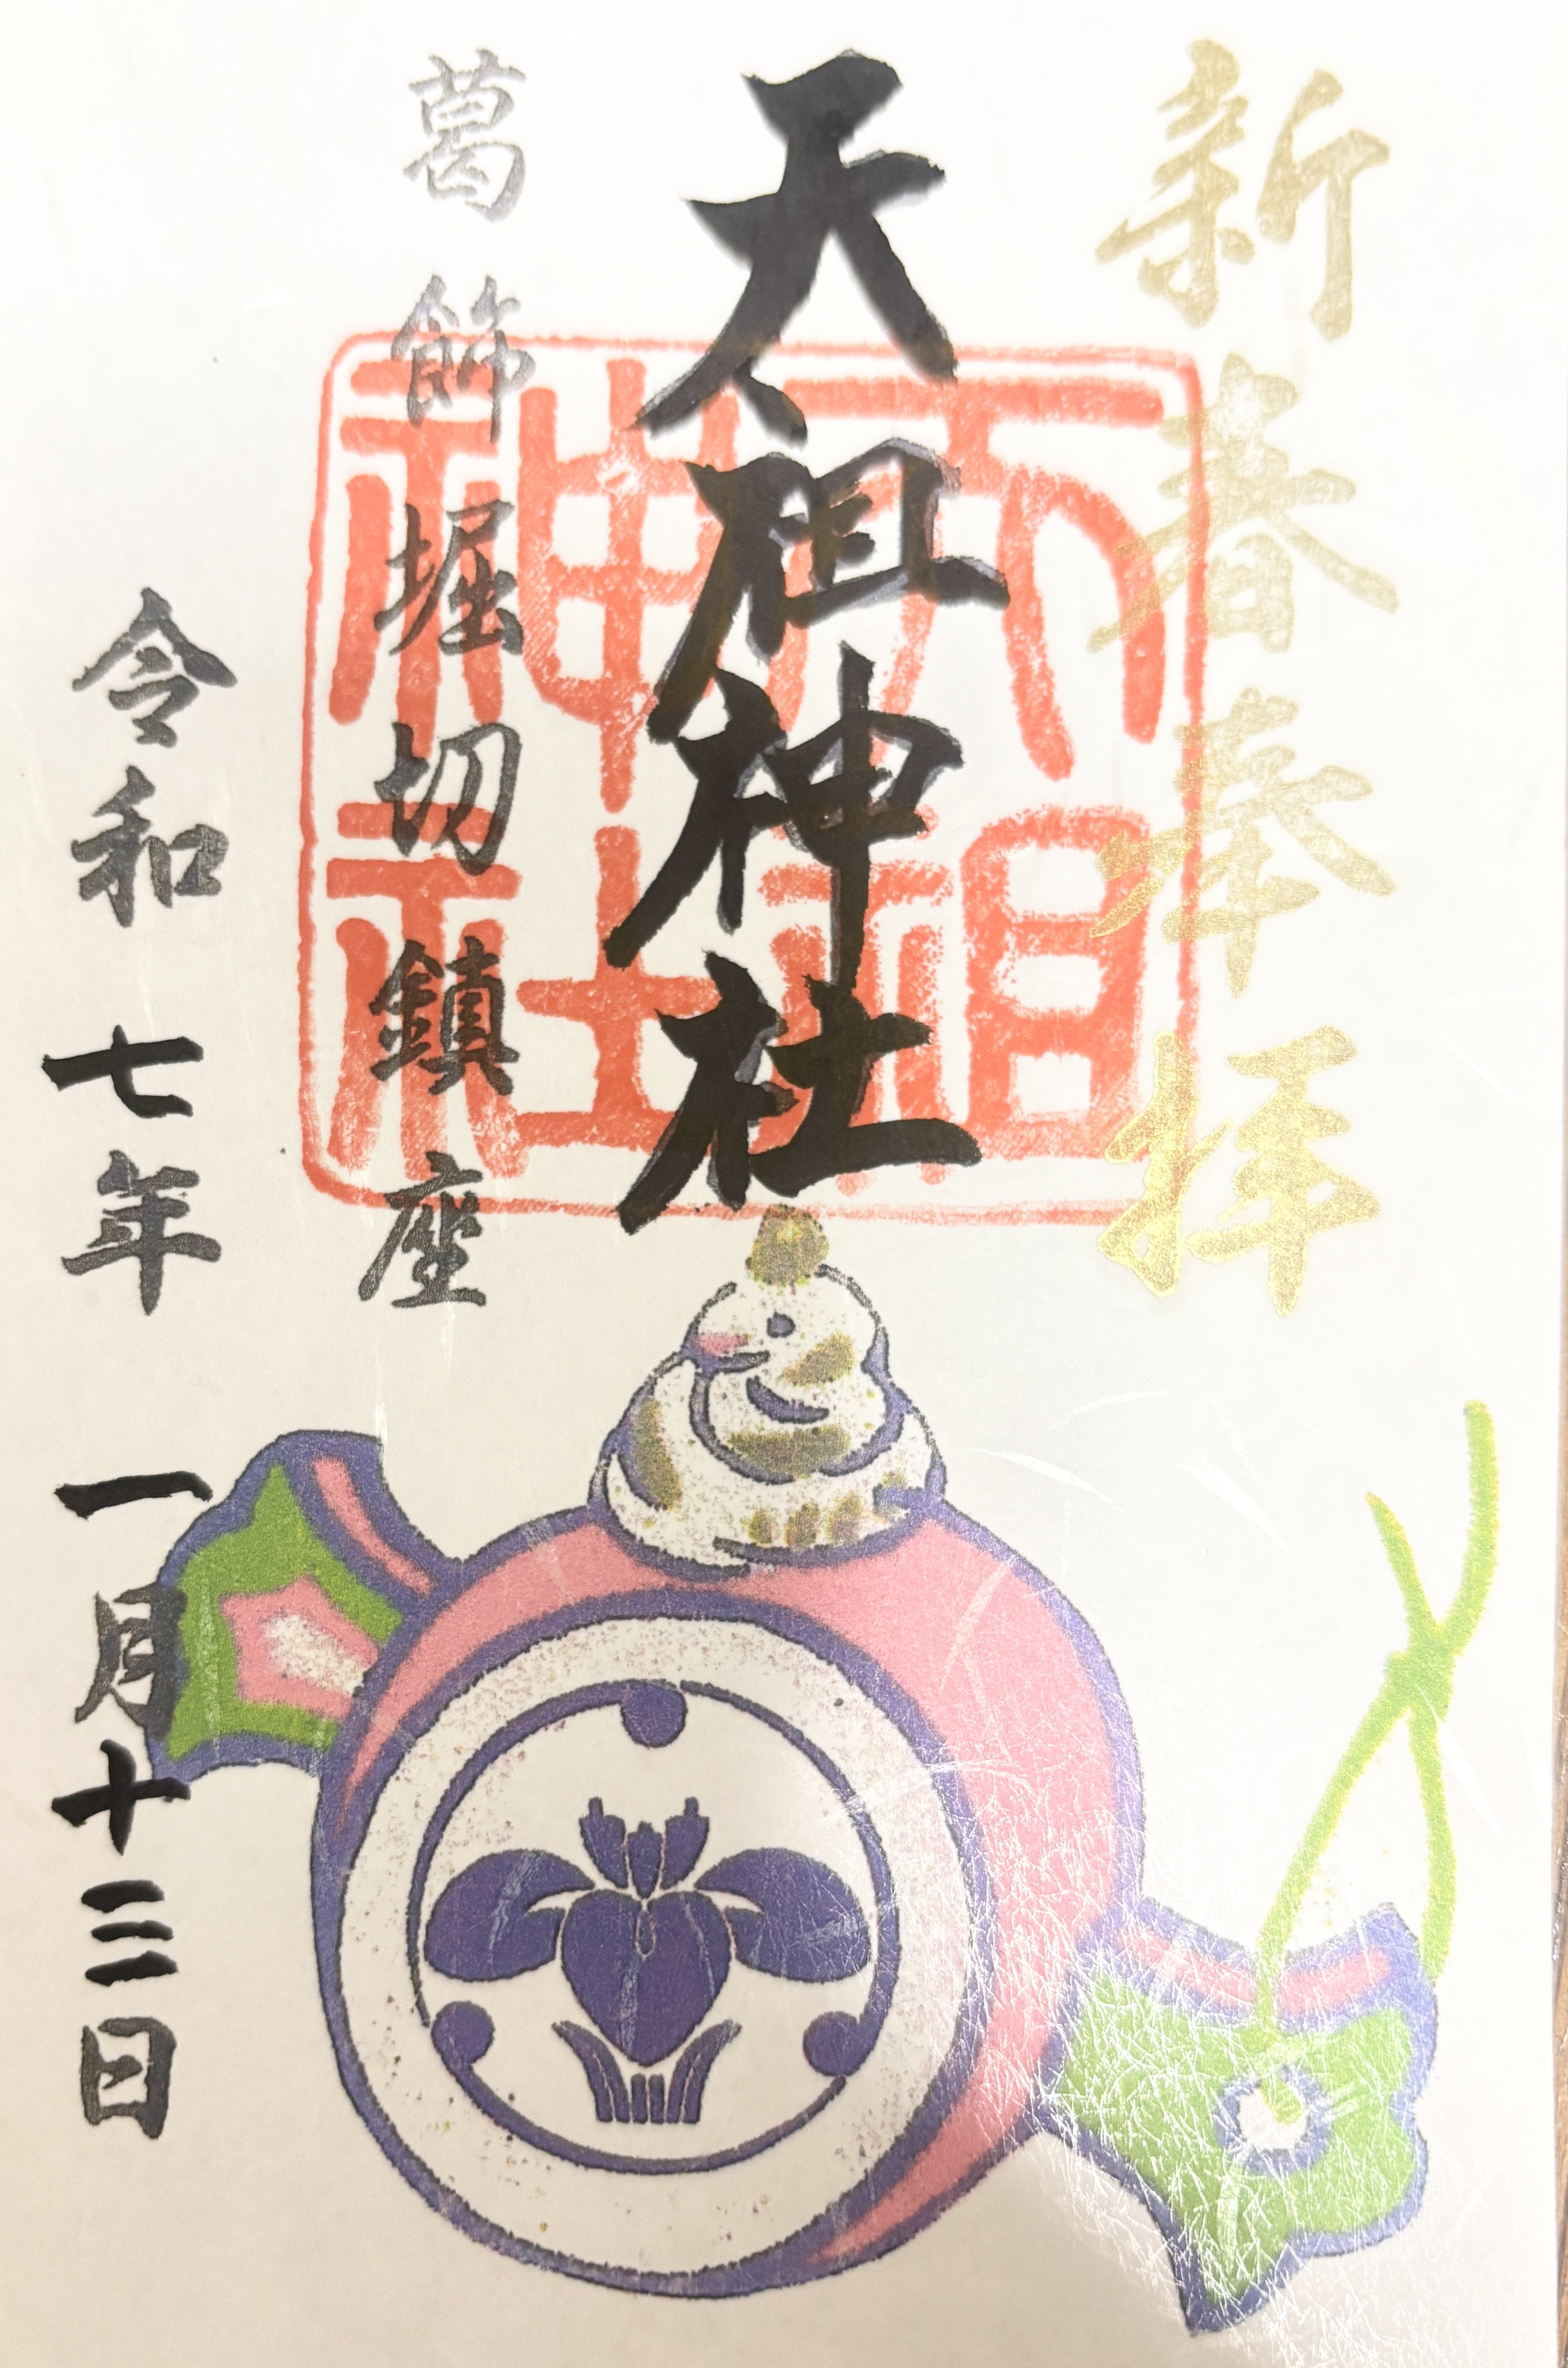 新春奉拝
天祖神社
天祖
神社
葛飾堀切鎮座
令和七年一月十三日